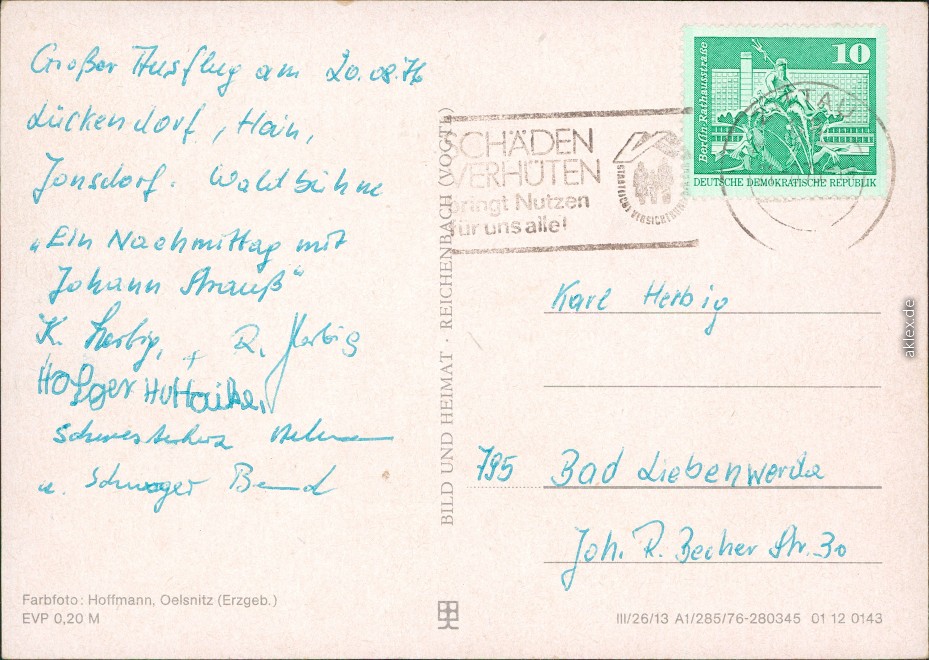 Großer Ausflug am 20.08.76
Lückendorf, Hain,
Jonsdorf. Waldbühne
„Ein Nachmittag mit
Johann Strauß"
K. Herbig, + R. Herbig
Holger
Schwesterherz
u. Schwager Bernd
Farbfoto: Hoffmann, Oelsnitz (Erzgeb.)
EVP 0,20 M
BILD UND HEIMAT · REICHENBACH (VOGTL)
SCHÄDEN
VERHÜTEN
bringt Nutzen
für uns alle!
STAATLICHE VERSICHERUNG
ZITTAU
10
Berlin, Rathausstraße
DEUTSCHE DEMOKRATISCHE REPUBLIK
Karl Herbig
795 Bad Liebenwerda
Joh. R. Becher Str. 30
III/26/13 A1/285/76-280345 01 12 0143
aklex.de